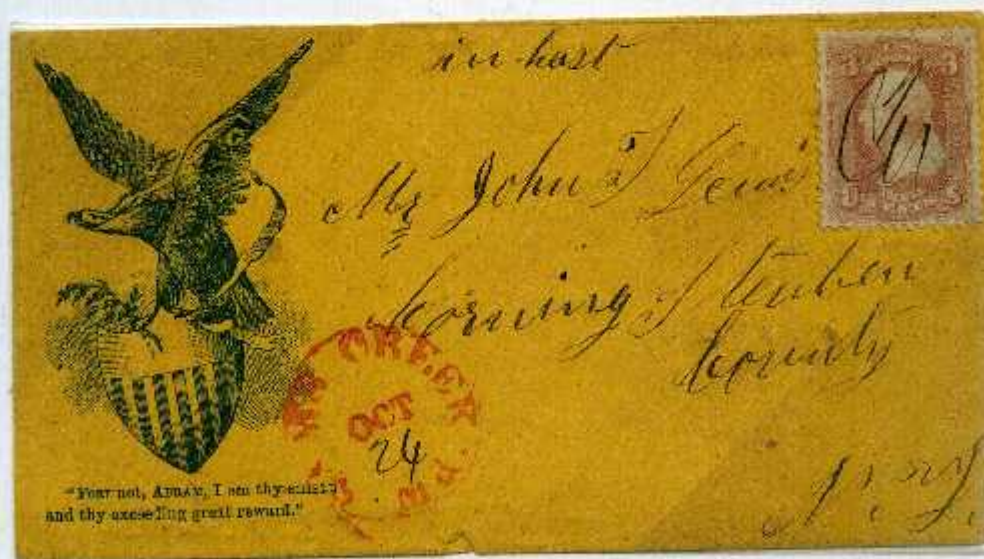 in hast
Mr John S Lewis
Corning Steuben
County
N. Y
CREEK
OCT
24
"Fear not, ABRAM, I am thy shield
and thy exceeding great reward."
3 3